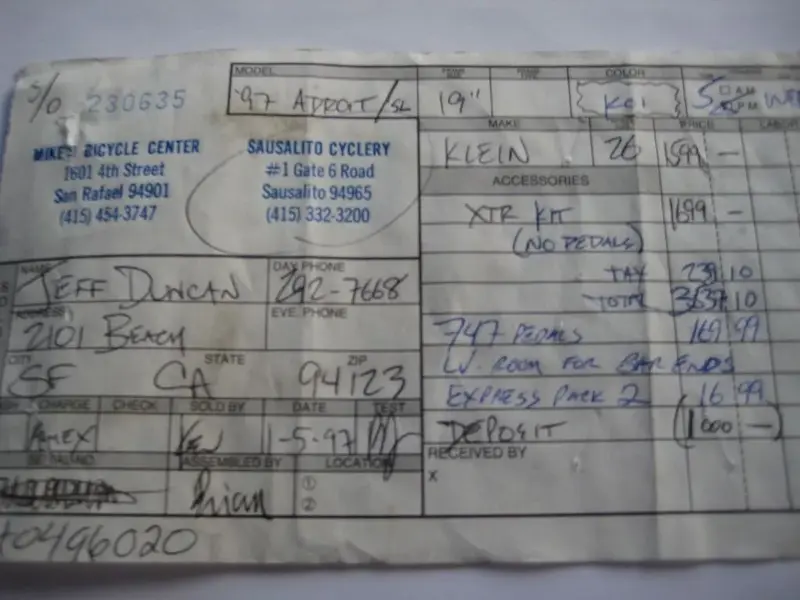 S/O 230635
MIKE'S BICYCLE CENTER
1601 4th Street
San Rafael 94901
(415) 454-3747
SAUSALITO CYCLERY
#1 Gate 6 Road
Sausalito 94965
(415) 332-3200
MODEL COLOR
'97 ADROIT/SL 19" KOI 5 AM PM WED
MAKE PRICE LABOR
KLEIN 26 1599 —
ACCESSORIES
XTR KIT 1699 —
(NO PEDALS)
TAX 239 10
TOTAL 3637 10
747 PEDALS 169 99
LV. ROOM FOR BAR ENDS
EXPRESS PACK 2 16 99
DEPOSIT (1000 —)
RECEIVED BY
X
NAME DAY PHONE
JEFF DUNCAN 292-7668
ADDRESS EVE. PHONE
2101 BEACH
CITY STATE ZIP
SF CA 94123
CHARGE CHECK SOLD BY DATE TEST
AMEX KEN 1-5-97
SERIAL NO ASSEMBLED BY LOCATION
Brian ①
②
0496020